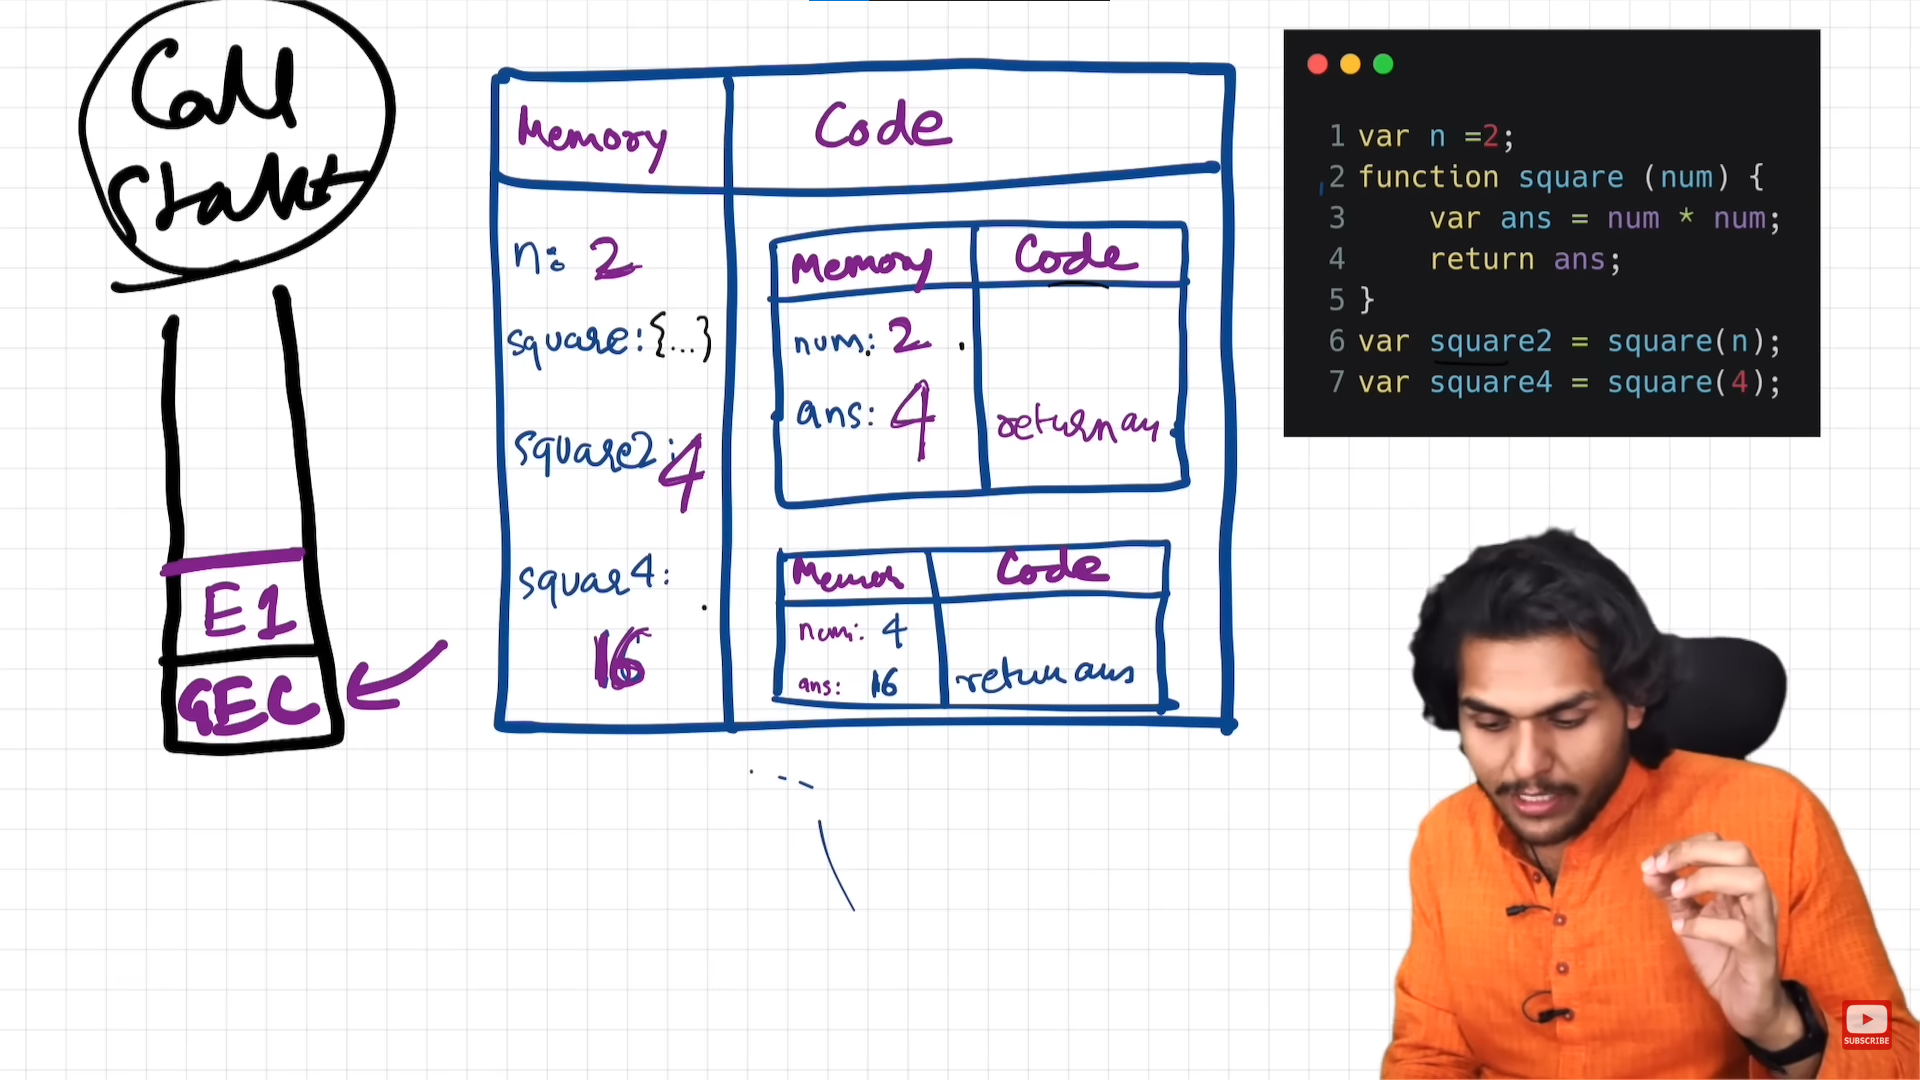 Call
Stakt
E1
GEC
Memory Code
n: 2
square: {...}
square2: 4
squar4:
16
Memory Code
num: 2
ans: 4
return an
Code
num: 4
ans: 16
return ans
1 var n =2;
2 function square (num) {
3 var ans = num * num;
4 return ans;
5 }
6 var square2 = square(n);
7 var square4 = square(4);
SUBSCRIBE